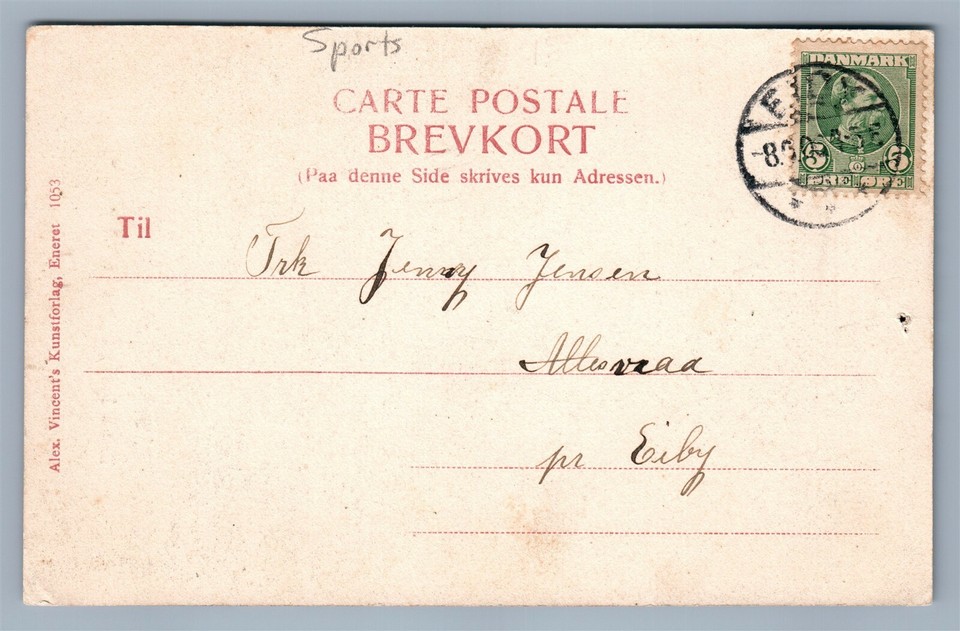 Sports
CARTE POSTALE
BREVKORT
(Paa denne Side skrives kun Adressen.)
DANMARK
5 5
ØRE ØRE
Til
Frk Jenny Jensen
pr Eiby
Alex. Vincent's Kunstforlag, Eneret 1053